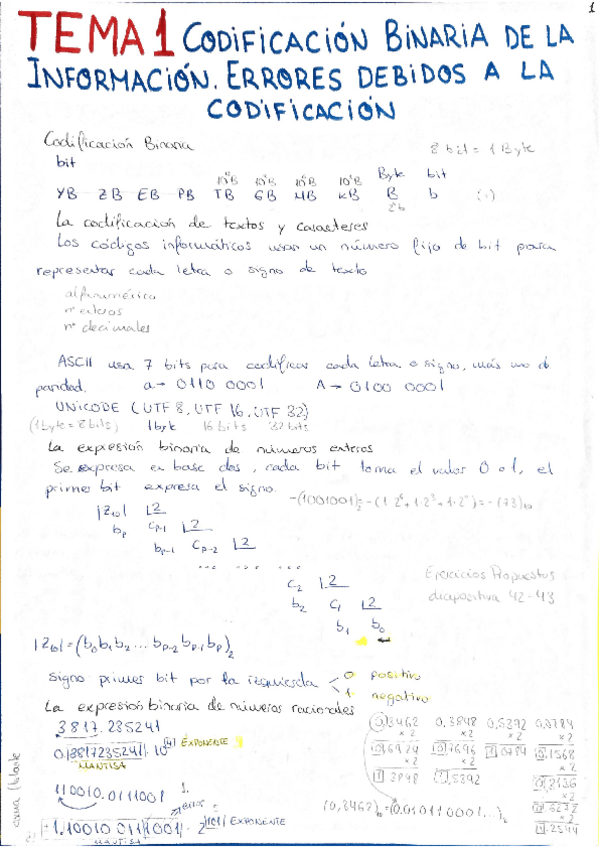 1
TEMA 1 CODIFICACIÓN BINARIA DE LA
INFORMACIÓN. ERRORES DEBIDOS A LA
CODIFICACIÓN
Codificación Binaria
8 bit = 1 Byte
bit
Byte bit
YB ZB EB PB TB GB MB KB B b
La codificación de textos y caracteres
Los códigos informáticos usan un número fijo de bit para
representar cada letra o signo de texto
alfanumérico
nº enteros
nº decimales
ASCII usa 7 bits para codificar cada letra o signo, más uno d
paridad. a → 0110 0001 A → 0100 0001
UNICODE (UTF 8, UTF 16, UTF 32)
(1 byte = 8 bits) 1 byte 16 bits 32 bits
La expresión binaria de números enteros
Se expresa en base dos, cada bit toma el valor 0 o 1, el
primer bit expresa el signo.
-(1001001)₂ = -(1·2⁶+1·2³+1·2⁰) = -(73)₁₀
|Z₁₀| |2
bp cp-1 |2
bp-1 cp-2 |2
... ... ...
c₂ |2
b₂ c₁ |2
b₁ b₀
Ejercicios Propuestos
diapositiva 42-43
|Z₁₀| = (b₀b₁b₂...bp-2bp-1bp)₂
Signo primer bit por la izquierda
0 positivo
1 negativo
La expresión binaria de números racionales
3817.235241
0.3817235241·10 EXPONENTE
MANTISA
110010.0111001
EXPONENTE
MANTISA
0,3462 0,3848 0,5392 0,0784
x2 x2 x2 x2
0,6924 0,7696 1,0784 0,1568
x2 x2 x2
1,3848 1,5392 0,3136
x2
0,6272
x2
1,2544
(0,3462)₁₀ = (0,010110001...)₂
coma flotante